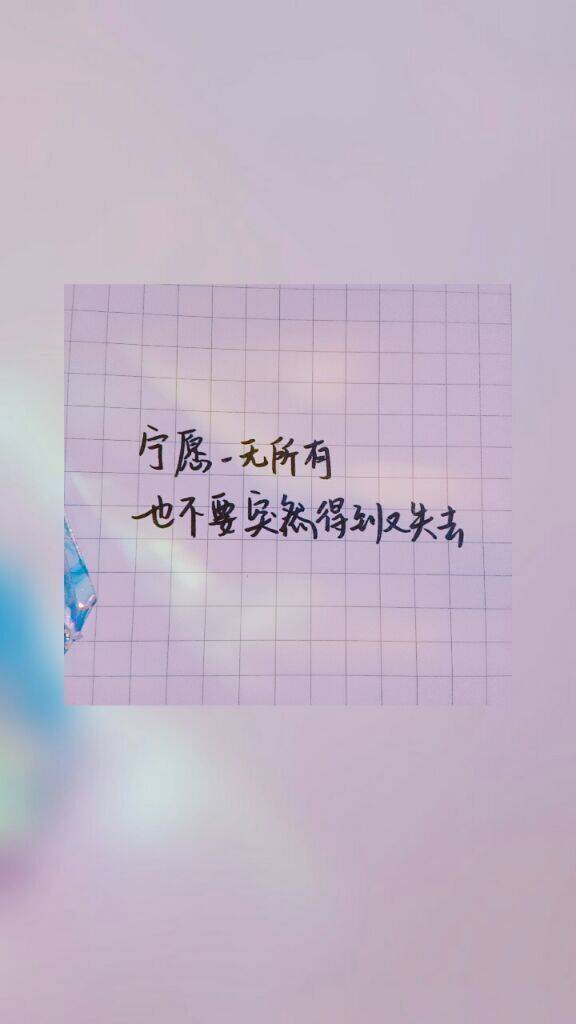 宁愿一无所有
也不要突然得到又失去